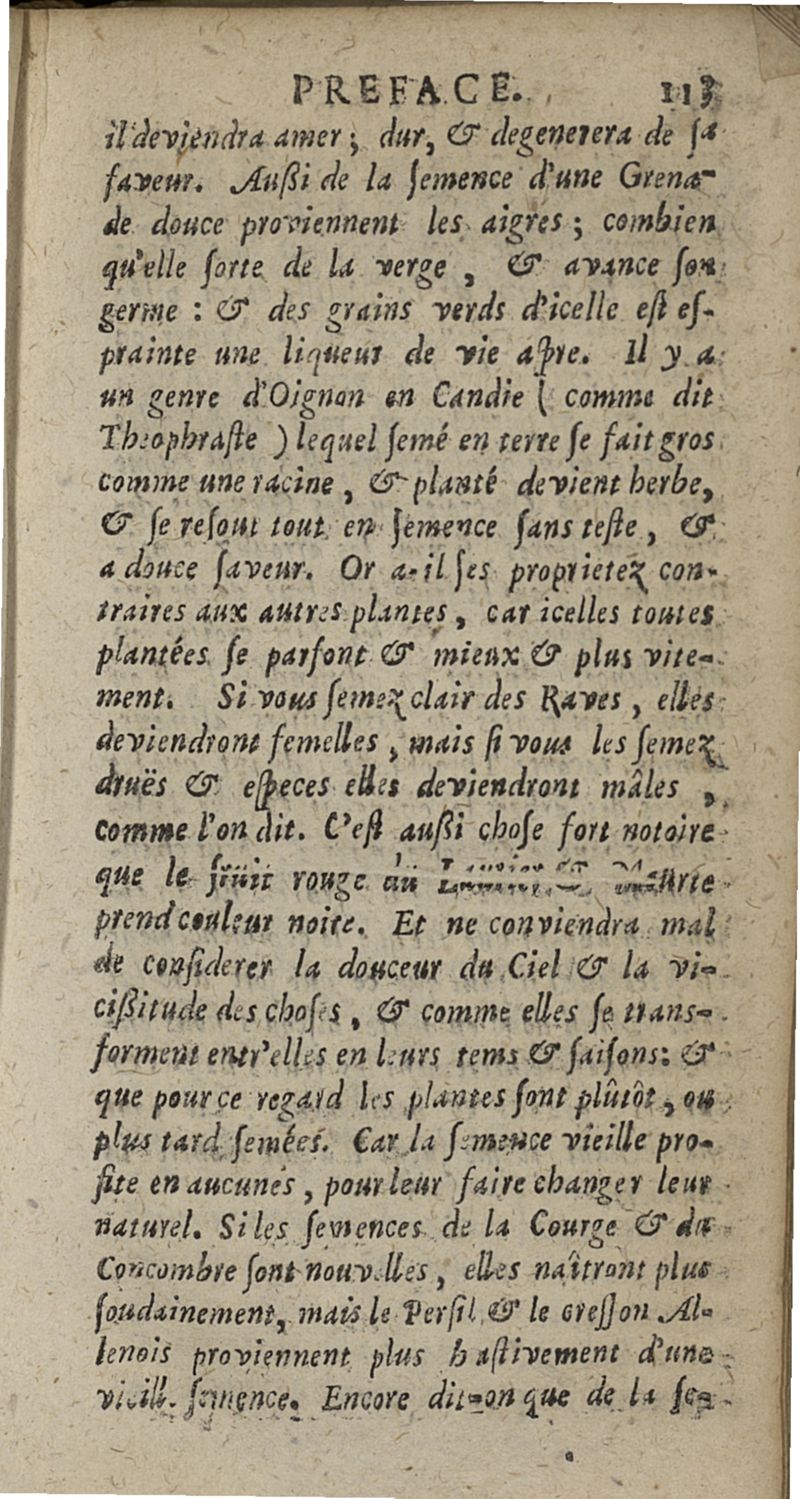 PREFACE. 113
il deviendra amer; dur, & degenerera de ſa
ſaveur. Auſſi de la ſemence d'une Grena-
de douce proviennent les aigres; combien
qu'elle ſorte de la verge, & avance ſon
germe : & des grains verds d'icelle eſt eſ-
prainte une liqueur de vie aſpre. Il y a
un genre d'Oignon en Candie ( comme dit
Theophraſte ) lequel ſemé en terre ſe fait gros
comme une racine, & planté devient herbe,
& ſe reſout tout en ſemence ſans teſte, &
a douce ſaveur. Or a-il ſes proprietez con-
traires aux autres plantes, car icelles toutes
plantées ſe parfont & mieux & plus vite-
ment. Si vous ſemez clair des Raves, elles
deviendront femelles, mais ſi vous les ſemez
druës & eſpeces elles deviendront mâles,
comme l'on dit. C'eſt auſſi choſe fort notoire
que le fruit rouge du Laurier &
prend couleur noire. Et ne conviendra mal
de conſiderer la douceur du Ciel & la vi-
ciſſitude des choſes, & comme elles ſe trans-
forment entr'elles en leurs tems & ſaiſons: &
que pour ce regard les plantes ſont plûtôt, ou
plus tard ſemées. Car la ſemence vieille pro-
fite en aucunes, pour leur faire changer leur
naturel. Si les ſemences de la Courge & du
Concombre ſont nouvelles, elles naîtront plus
ſoudainement, mais le Perſil & le creſſon Al-
lenois proviennent plus haſtivement d'une
vieille ſemence. Encore dit-on que de la ſe-